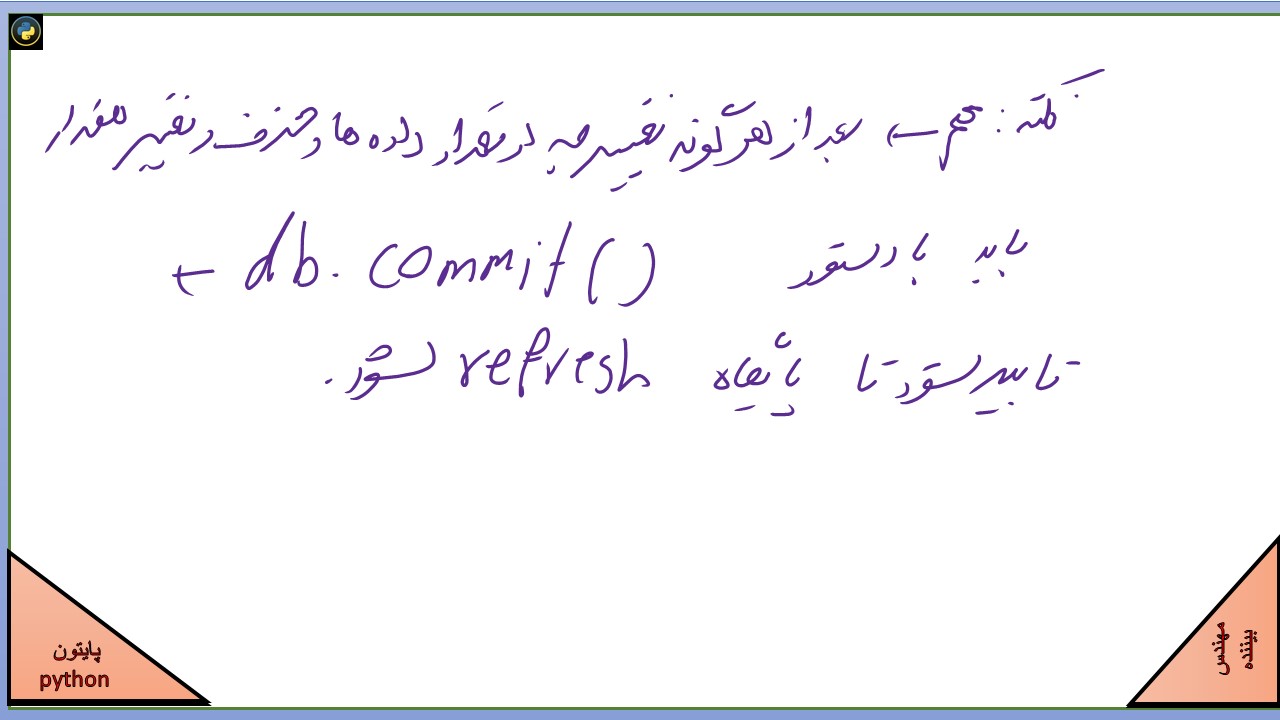 نکته: مهم ← بعد از هر گونه تغییر چه در مقدار داده ها و حذف و تغییر مقدار
باید با دستور db.commit() ←
تایید شود تا پایگاه refresh شود.
پایتون
python
مهندس
بیننده